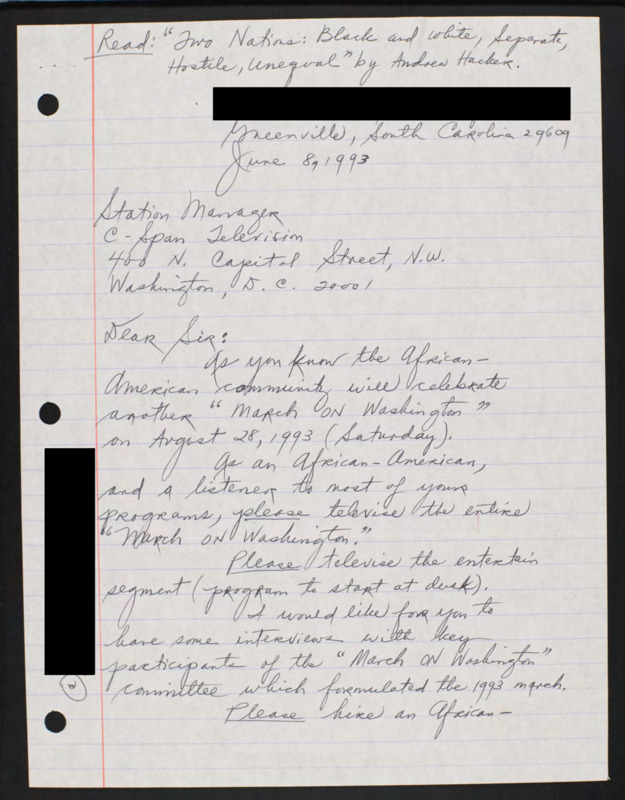 Read: "Two Nations: Black and White, Separate,
Hostile, Unequal" by Andrew Hacker.
Greenville, South Carolina 29609
June 8, 1993
Station Manager
C-Span Television
400 N. Capitol Street, N.W.
Washington, D.C. 20001
Dear Sir:
As you know the African-
American community will celebrate
another "March ON Washington"
on August 28, 1993 (Saturday).
As an African-American,
and a listener to most of your
programs, please televise the entire
"March ON Washington."
Please televise the entertain
segment (program to start at dusk).
I would like for you to
have some interviews with key
participants of the "March ON Washington"
committee which formulated the 1993 march.
Please hire an African-